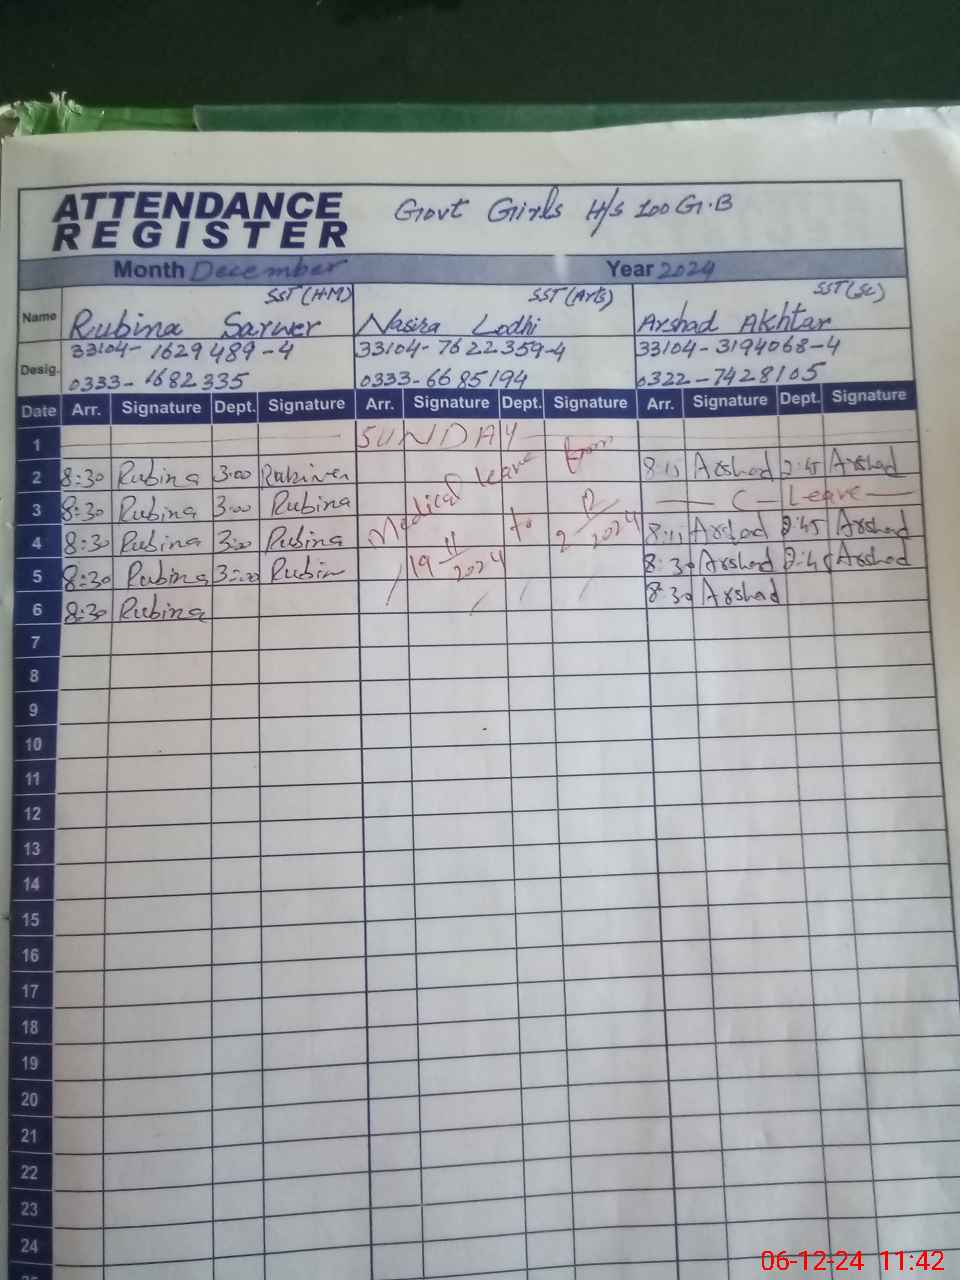 ATTENDANCE REGISTER Govt Girls H/S 100 G.B
Month December Year 2024
SST (H.M) SST (Arts) SST (Sc)
Name Rubina Sarwer Nasira Lodhi Arshad Akhtar
33104-1629489-4 33104-7622359-4 33104-3194068-4
Desig. 0333-1682335 0333-6685194 0322-7428105
Date Arr. Signature Dept. Signature Arr. Signature Dept. Signature Arr. Signature Dept. Signature
1 SUNDAY
2 8:30 Rubina 3:00 Medical leave from 8:15 Arshad 2:45 Arshad
3 8:30 Rubina 3:00 Rubina C- Leave
4 8:30 Rubina 3:00 Rubina 19 11/2024 to 2 12/2024 Arshad 2:45 Arshad
5 8:30 Rubina 3:00 8:30 Arshad 2:45 Arshad
6 8:30 Rubina 8:30 Arshad
7
8
9
10
11
12
13
14
15
16
17
18
19
20
21
22
23
24
06-12-24 11:42